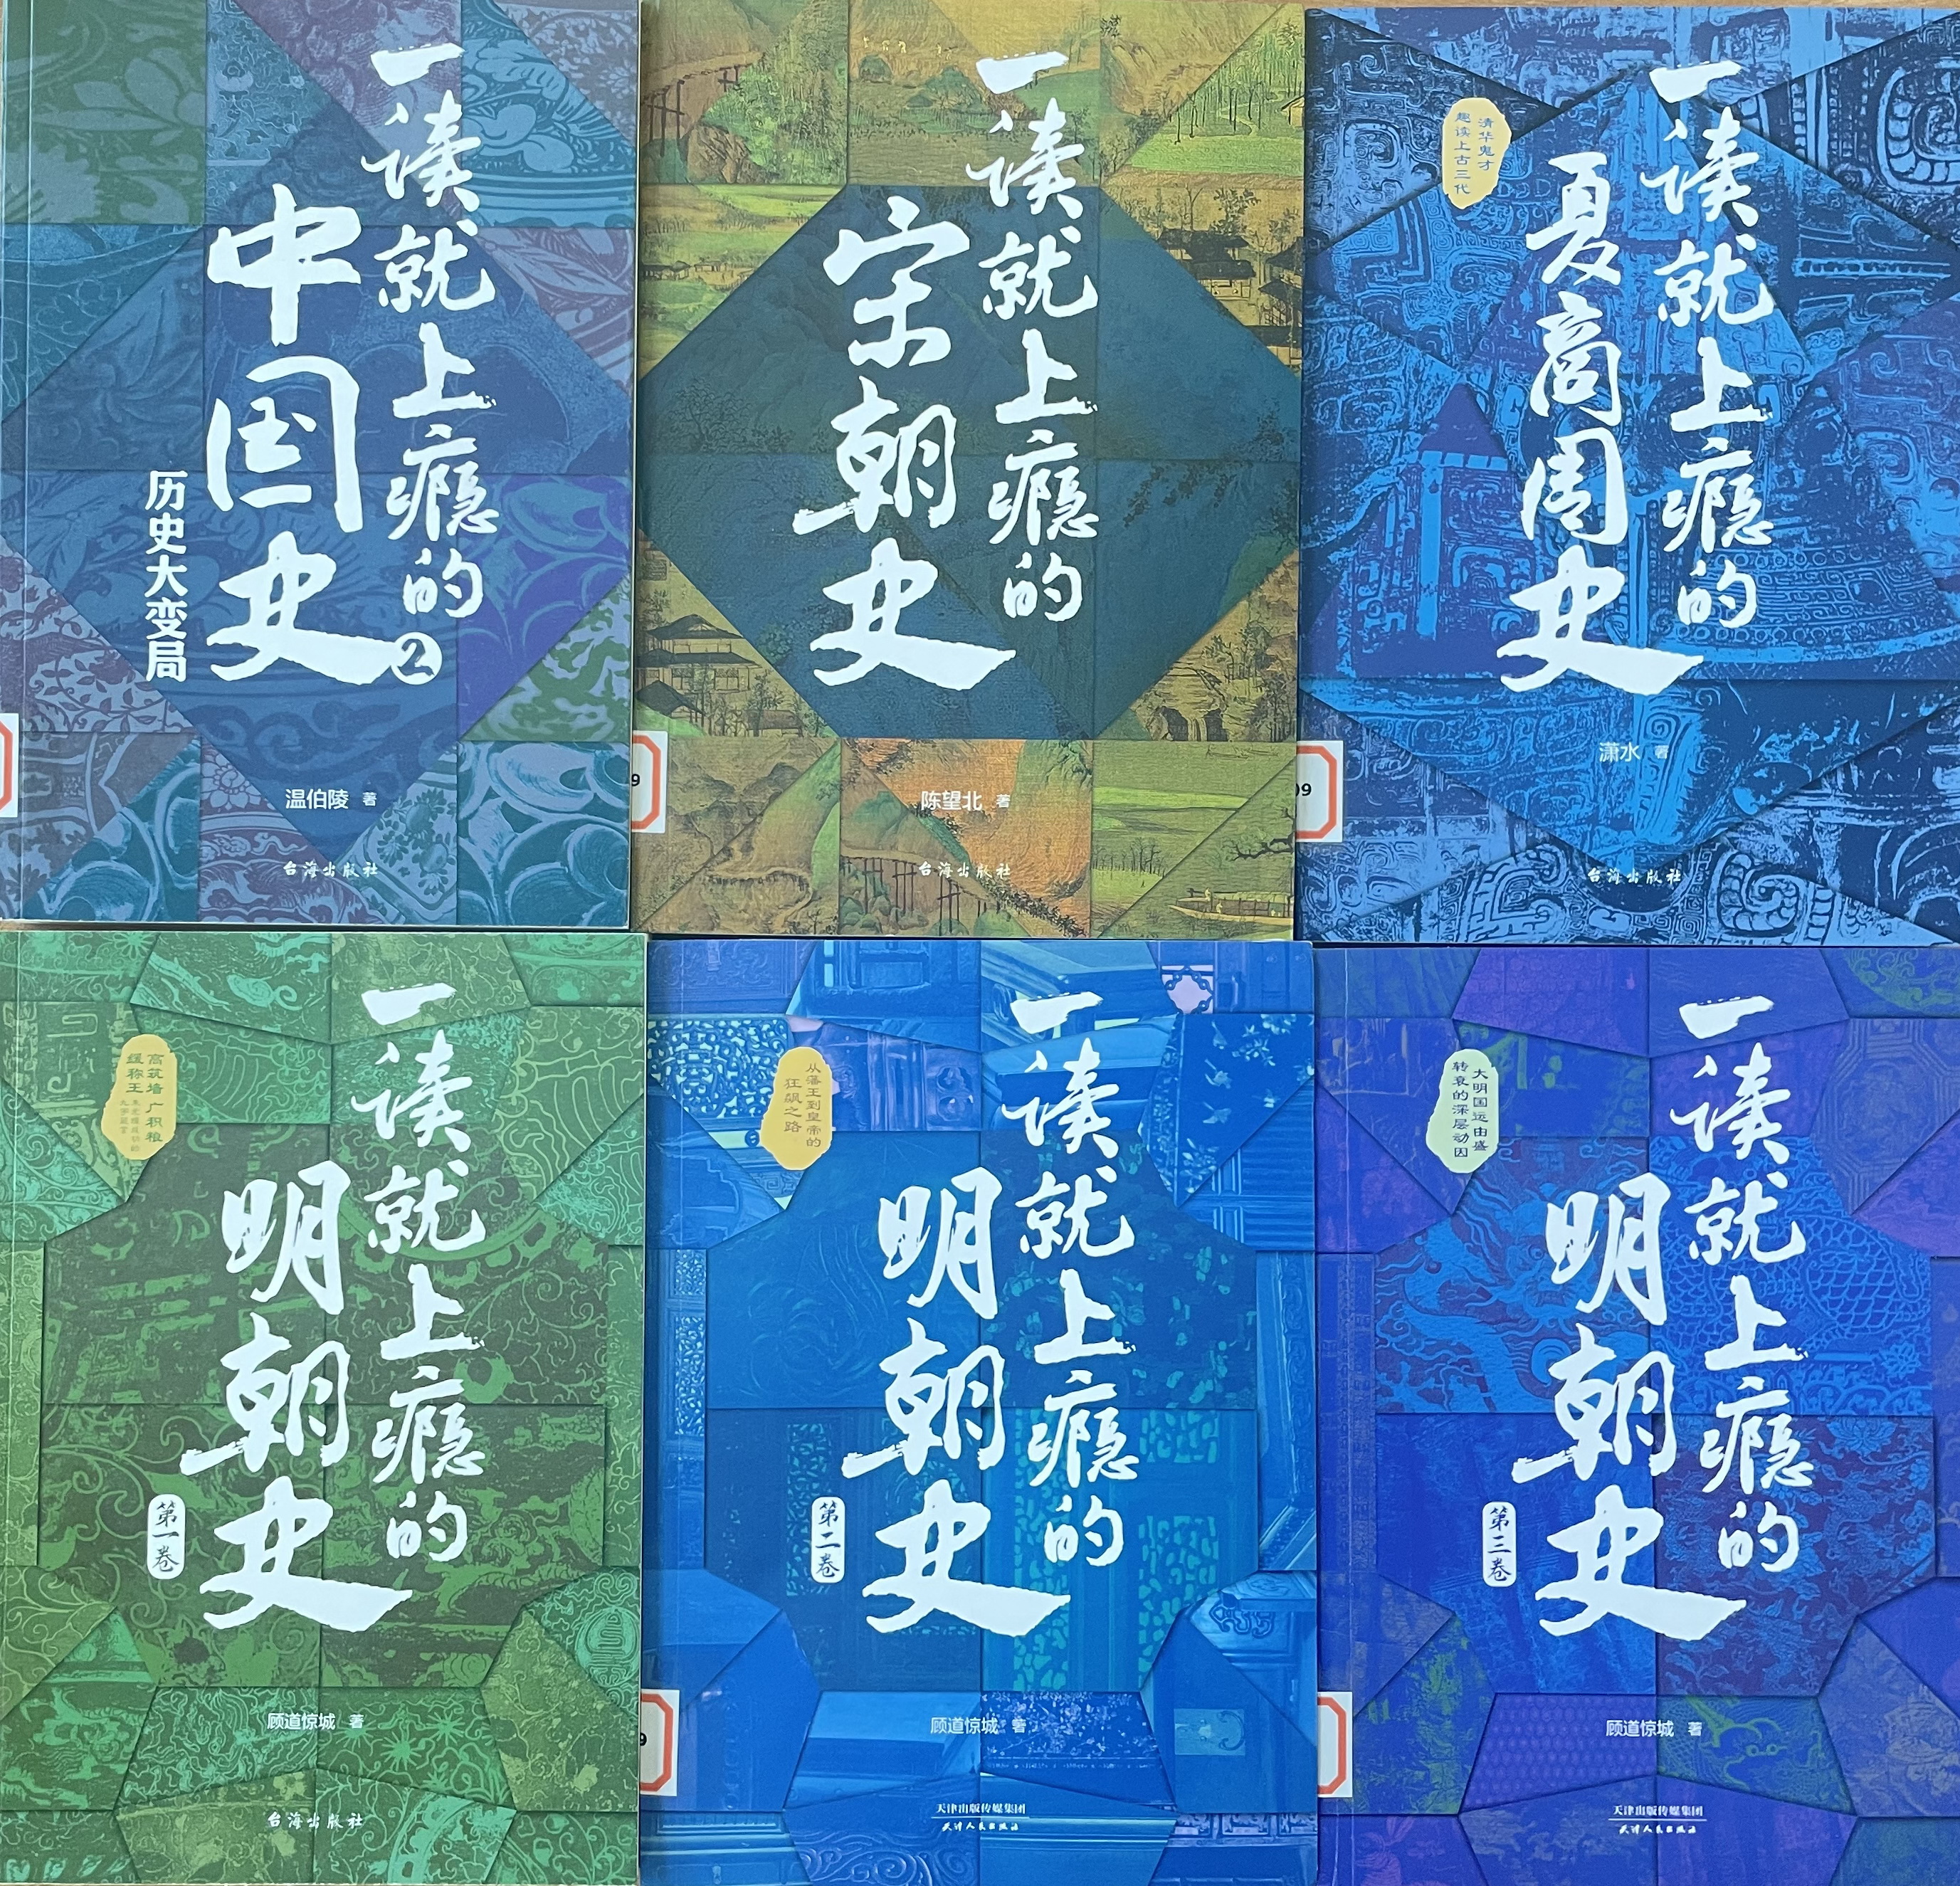 一读就上瘾的
中国史
2
历史大变局
温伯陵 著
台海出版社
一读就上瘾的
宋朝史
陈望北 著
台海出版社
9
一读就上瘾的
夏商周史
清华鬼才
趣读上古三代
潇水 著
台海出版社
09
一读就上瘾的
明朝史
第一卷
高筑墙 广积粮
缓称王
顾道惊城 著
台海出版社
一读就上瘾的
明朝史
第二卷
从藩王到皇帝的
狂飙之路
顾道惊城 著
天津出版传媒集团
天津人民出版社
9
一读就上瘾的
明朝史
第三卷
大明国运由盛
转衰的深层动因
顾道惊城 著
天津出版传媒集团
天津人民出版社